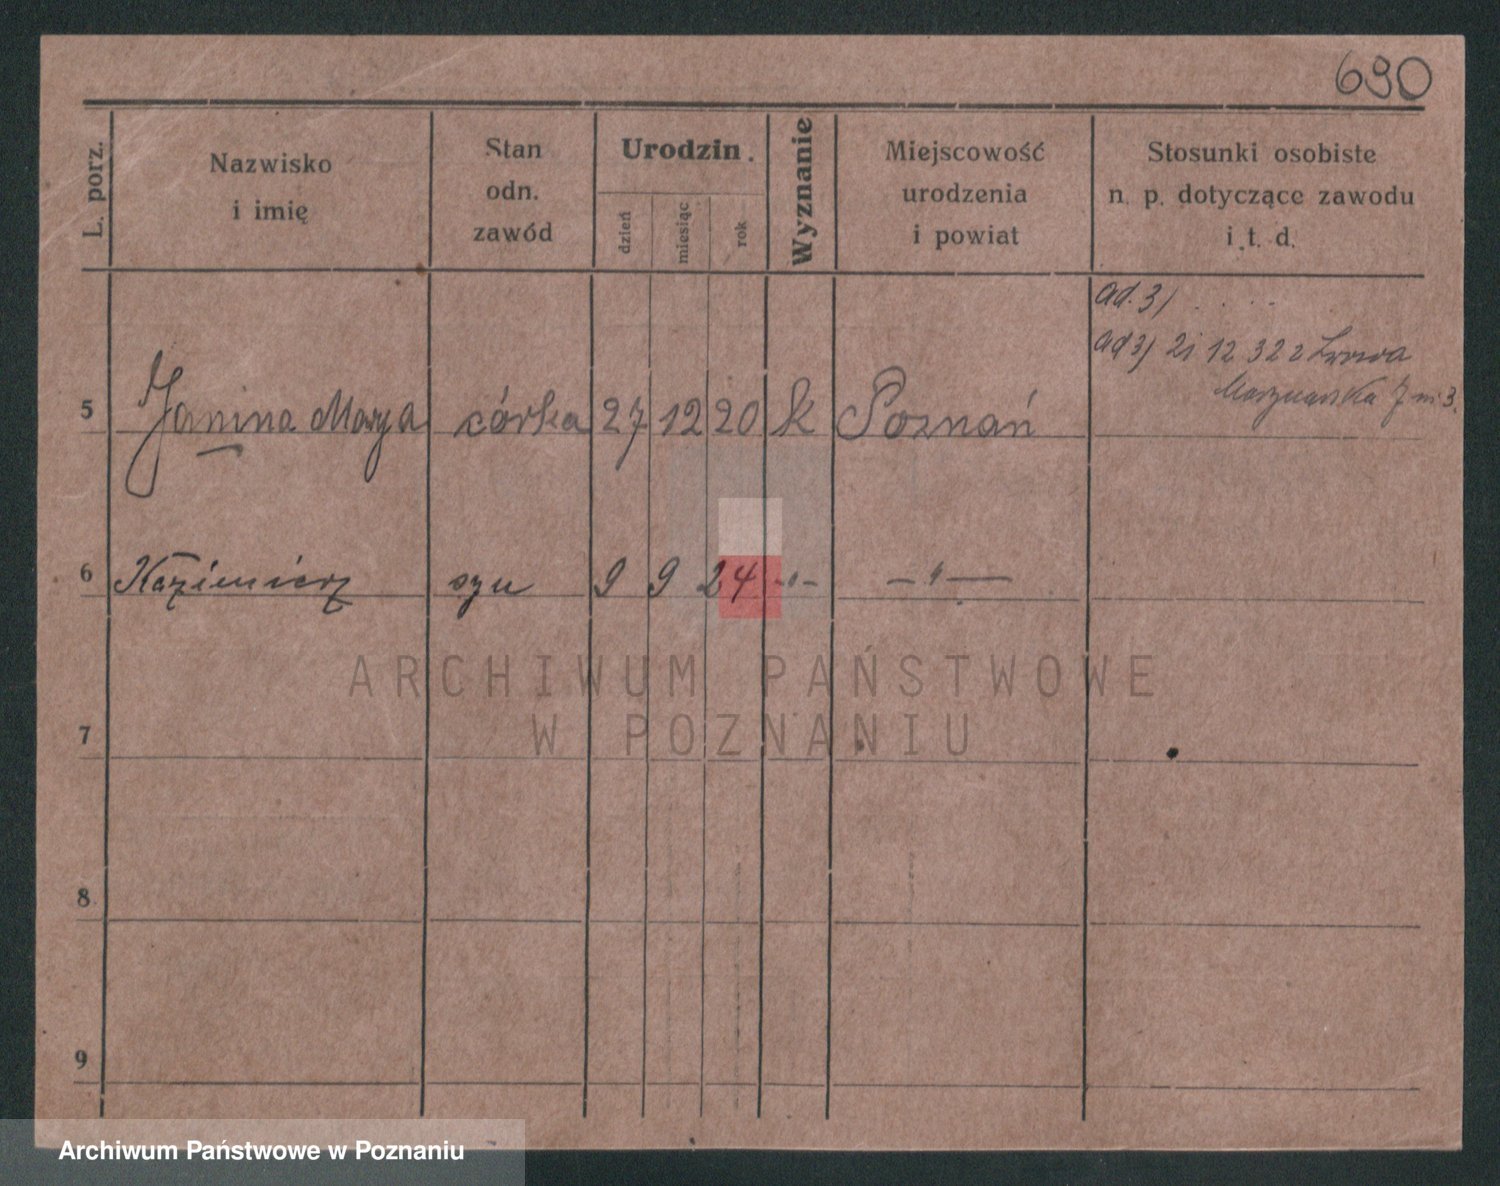 690
L. porz.
Nazwisko
i imię
Stan
odn.
zawód
Urodzin.
dzień
miesiąc
rok
Wyznanie
Miejscowość
urodzenia
i powiat
Stosunki osobiste
n. p. dotyczące zawodu
i t. d.
ad. 3) . . . .
ad 3) 21 12 32 z Lwowa
7 m 3.
5 Janina Marya córka 27 12 20 k Poznań
6 Kazimierz syn 9 9 24 -"- -"-
ARCHIWUM PAŃSTWOWE
W POZNANIU
7
8
9
Archiwum Państwowe w Poznaniu